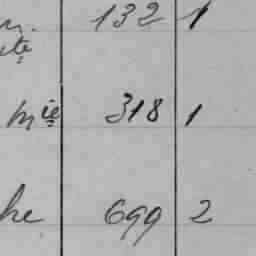 132 1
mie 318 1
he 699 2